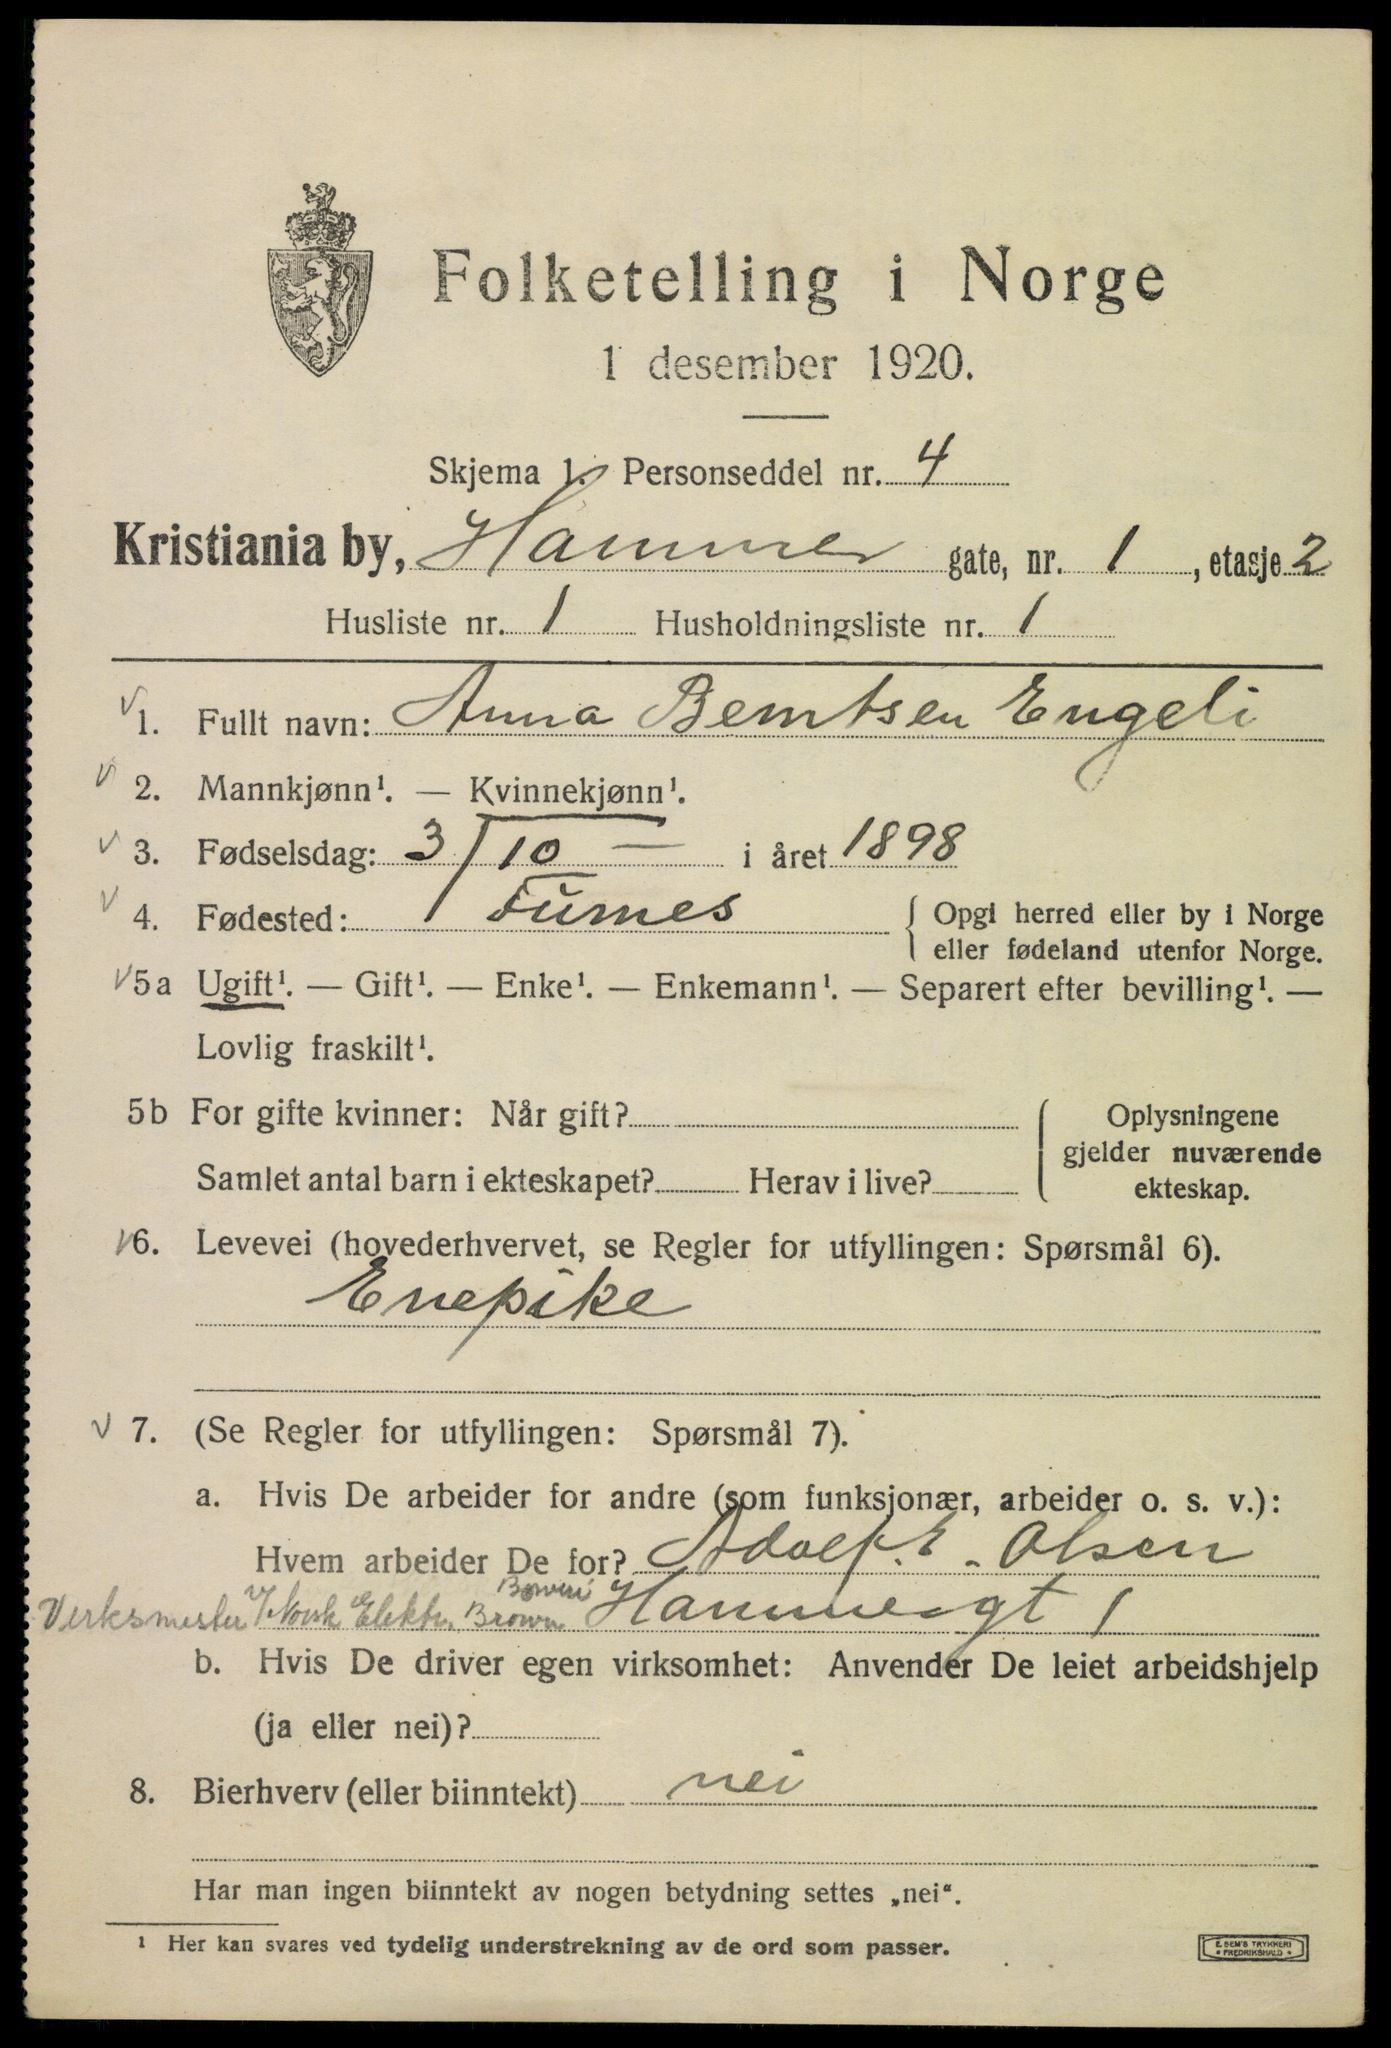 Folketelling i Norge
1 desember 1920.
Skjema 1. Personseddel nr. 4
Kristiania by, Hammer gate, nr. 1, etasje 2
Husliste nr. 1 Husholdningsliste nr. 1
1. Fullt navn: Anna Berntsen Engeli
2. Mannkjønn¹. — Kvinnekjønn¹.
3. Fødselsdag: 3/10 — i året 1898
4. Fødested: Furnes { Opgi herred eller by i Norge
eller fødeland utenfor Norge.
5a Ugift¹. — Gift¹. — Enke¹. — Enkemann¹. — Separert efter bevilling¹. —
Lovlig fraskilt¹.
5b For gifte kvinner: Når gift? { Oplysningene
gjelder nuværende
Samlet antal barn i ekteskapet? Herav i live? ekteskap.
6. Levevei (hovederhvervet, se Regler for utfyllingen: Spørsmål 6).
Enepike
7. (Se Regler for utfyllingen: Spørsmål 7).
a. Hvis De arbeider for andre (som funksjonær, arbeider o. s. v.):
Hvem arbeider De for? Adolf. E. Olsen
Boveri
Verksmester V/Norsk Elektr. Brown Hammergt 1
b. Hvis De driver egen virksomhet: Anvender De leiet arbeidshjelp
(ja eller nei)?
8. Bierhverv (eller biinntekt) nei
Har man ingen biinntekt av nogen betydning settes „nei“.
¹ Her kan svares ved tydelig understrekning av de ord som passer.
E. SEM'S TRYKKERI
• FREDRIKSHALD •